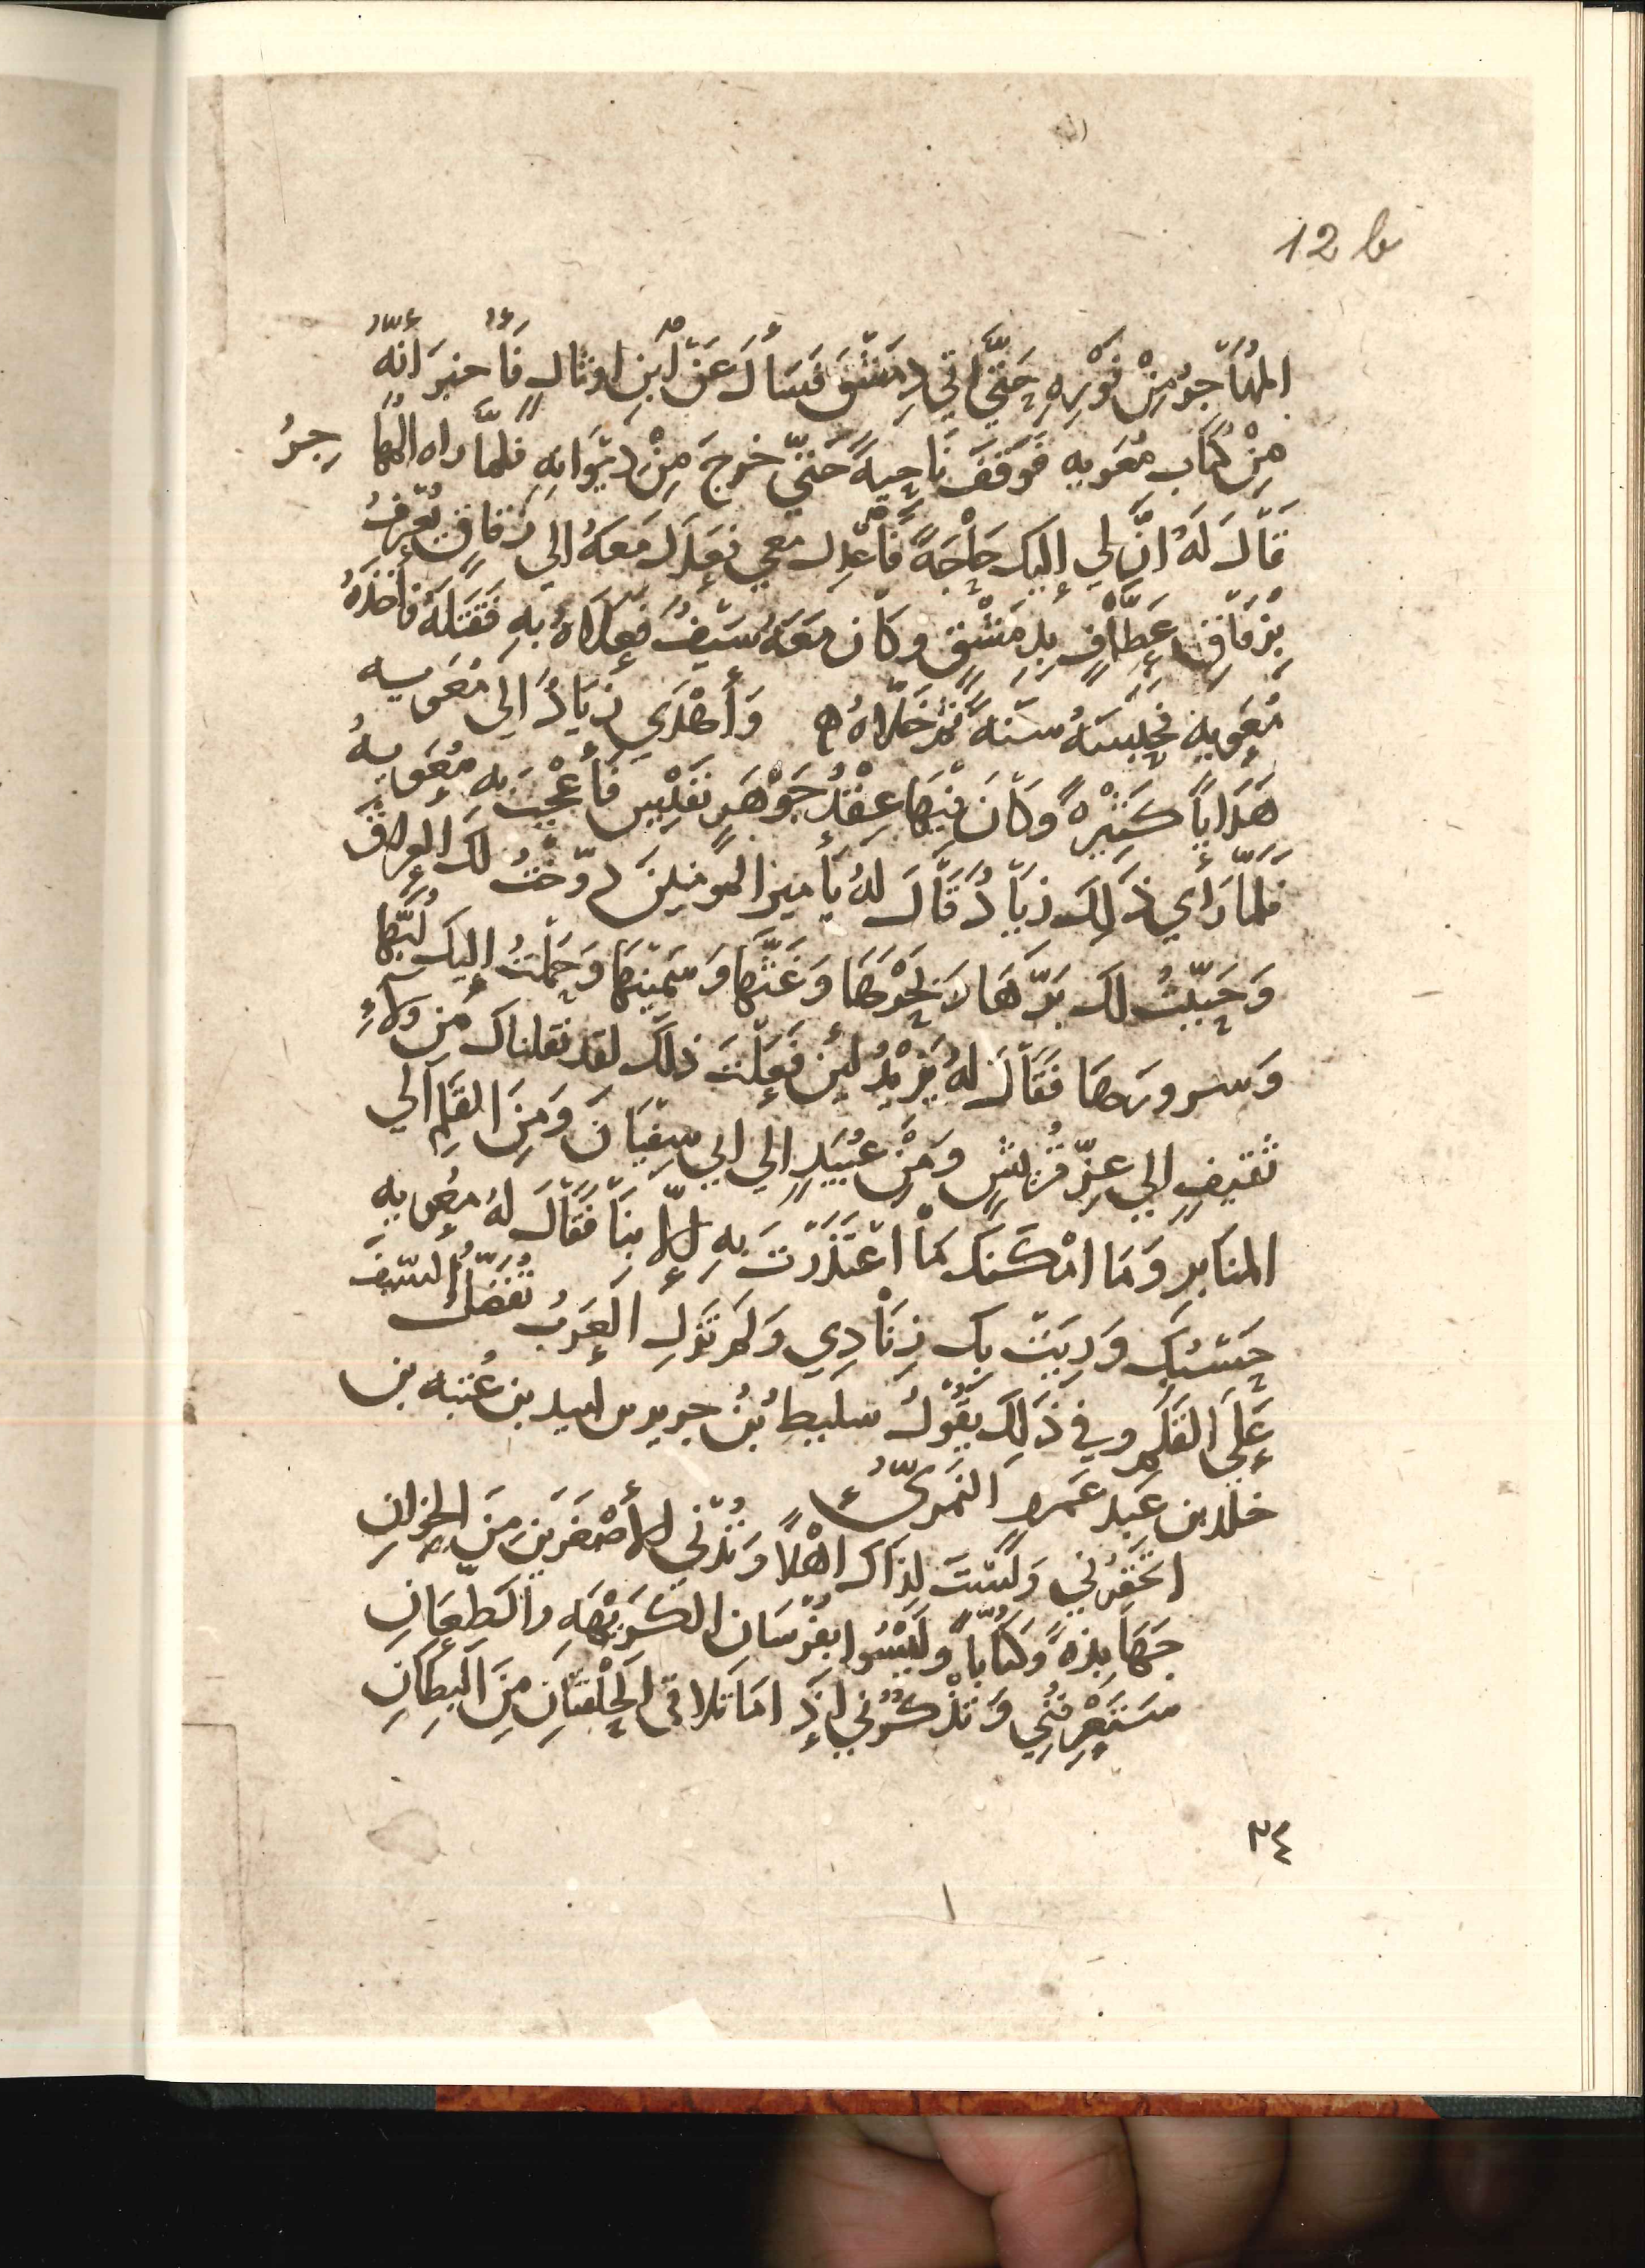 12 b
المُهَاجِرُ مِنْ فَوْرِهِ حَتَّى اتي دِمَشْقَ فَسَأَلَ عَنْ ابْنِ اوثالٍ فَأُخبِرَ أَنَّهُ
مِنْ كُتَّابِ مُعَوِيه فَوَقَفَ نَاحِيةً حَتَّى خرجَ مِنْ دِيْوَانِهِ فَلمَّا راه المُهَا جِرُ
قَالَ لَهُ انَّ لِي إليك حَاجَةً فَاعْدِل معي فعَدَلَ مَعَهُ الي زقاقٍ يُعْرَفُ
بِزقَاقِ عَطَّافٍ بِدِمَشْقٍ وكَان مَعَهُ سَيْفٌ فَعَلاَهُ بهِ فَقَتَلَهُ فأَخذَهُ
مُعَويه فحَبَسَهُ سَنَةً ثمّ خَلاَّهُ ه وَأَهْدَي زِيَادٌ الي مُعَويه
هَدَايَا كَثِيْرةً وَكَانَ فِيْهَا عِقْدُ جَوْهَرٍ نَفَيْسٍ فَأُعْجِبَ به مُعَويهُ
فلمّا رَأَي ذَلِكَ زيَادٌ قَالَ لهُ يَأمير المومنين دوّخْتُ لك العِراقَ
وَجَبَيْتُ لَك بَرَّهَا لاَ بَحْرَهَا وَغَثَّهَا وَسَمِيْنَهَا وَحَمَلْتُ إليك لُبَّهَا
وَسرورَهَا فَقَالَ لهُ يَزِيْدُ لَئِن فَعَلْتَ ذلك لقد نقلناك مِن وَلاءِ
ثَقِيفٍ الي عِزِّ قُرَيْشٍ وَمِنْ عُبَيْدٍ الي ابي سفيَانَ وَمِنَ القَلَمِ الي
المنَابِرِ وَمَا امْكَنَكَ مَا اعْتَذَرْتَ بِهِ إلاّ بِنَا فَقَالَ لهُ مُعويه
حَسْبُكَ وَرِيَتْ بِكَ زِنَادِي وَلم تَزَلِ العَرَبُ تُفَضِّلُ السَّيْفَ
عَلَى القَلَمِ وفي ذَلِكَ يَقُولُ سليطُ بْنُ جرير بن لبيد بن عُتبه بن
خلد بن عَبد عَمرٍو النَمَرِيّ
اتحقِرُني وَلَسْتَ لِذَاكَ اهْلاً وَتُدْني الأَصْغَرَيْنِ مِنَ الخِوَانِ
جَهَابِذةً وَكُتَّاباً وَلَيْسُوا بفُرْسَانِ الكَرِيْهَةِ والطِّعَانِ
سَتَعْرِفُنِي وَتَذْكُرُني إذَا مَا تلاقي الحَلْقَتَانِ مِنَ البِطَانِ
٣٤